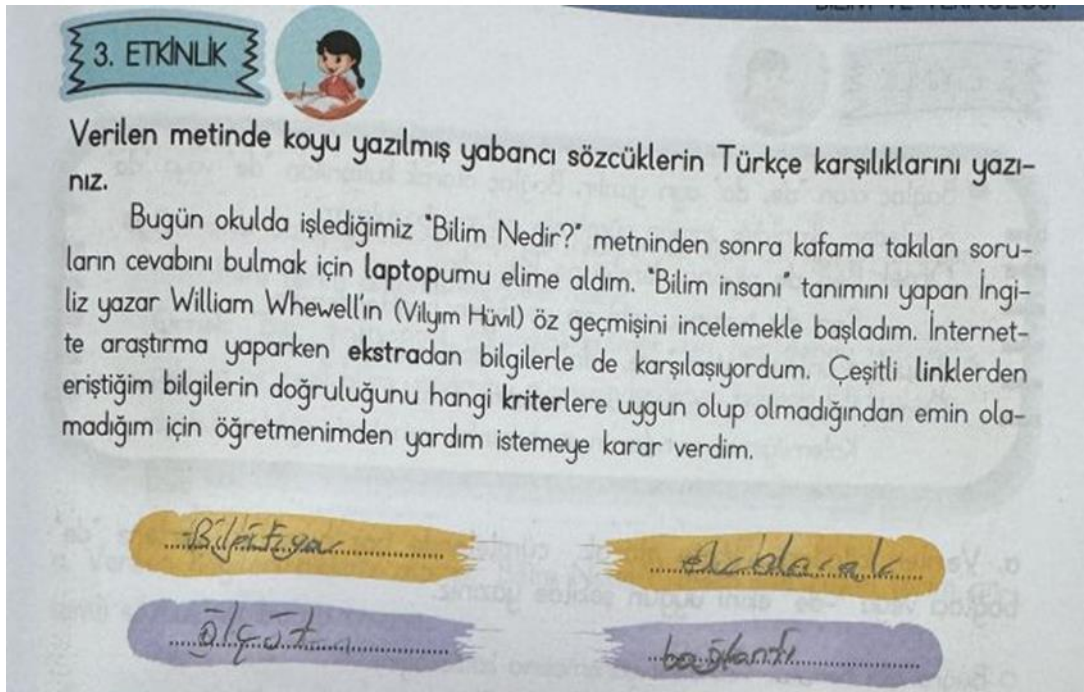 3. ETKİNLİK
Verilen metinde koyu yazılmış yabancı sözcüklerin Türkçe karşılıklarını yazı-
nız.
Bugün okulda işlediğimiz "Bilim Nedir?" metninden sonra kafama takılan soru-
ların cevabını bulmak için laptopumu elime aldım. "Bilim insanı" tanımını yapan İngi-
liz yazar William Whewell'ın (Vilyım Hüvıl) öz geçmişini incelemekle başladım. İnternet-
te araştırma yaparken ekstradan bilgilerle de karşılaşıyordum. Çeşitli linklerden
eriştiğim bilgilerin doğruluğunu hangi kriterlere uygun olup olmadığından emin ola-
madığım için öğretmenimden yardım istemeye karar verdim.
ölçüt
bağlantı